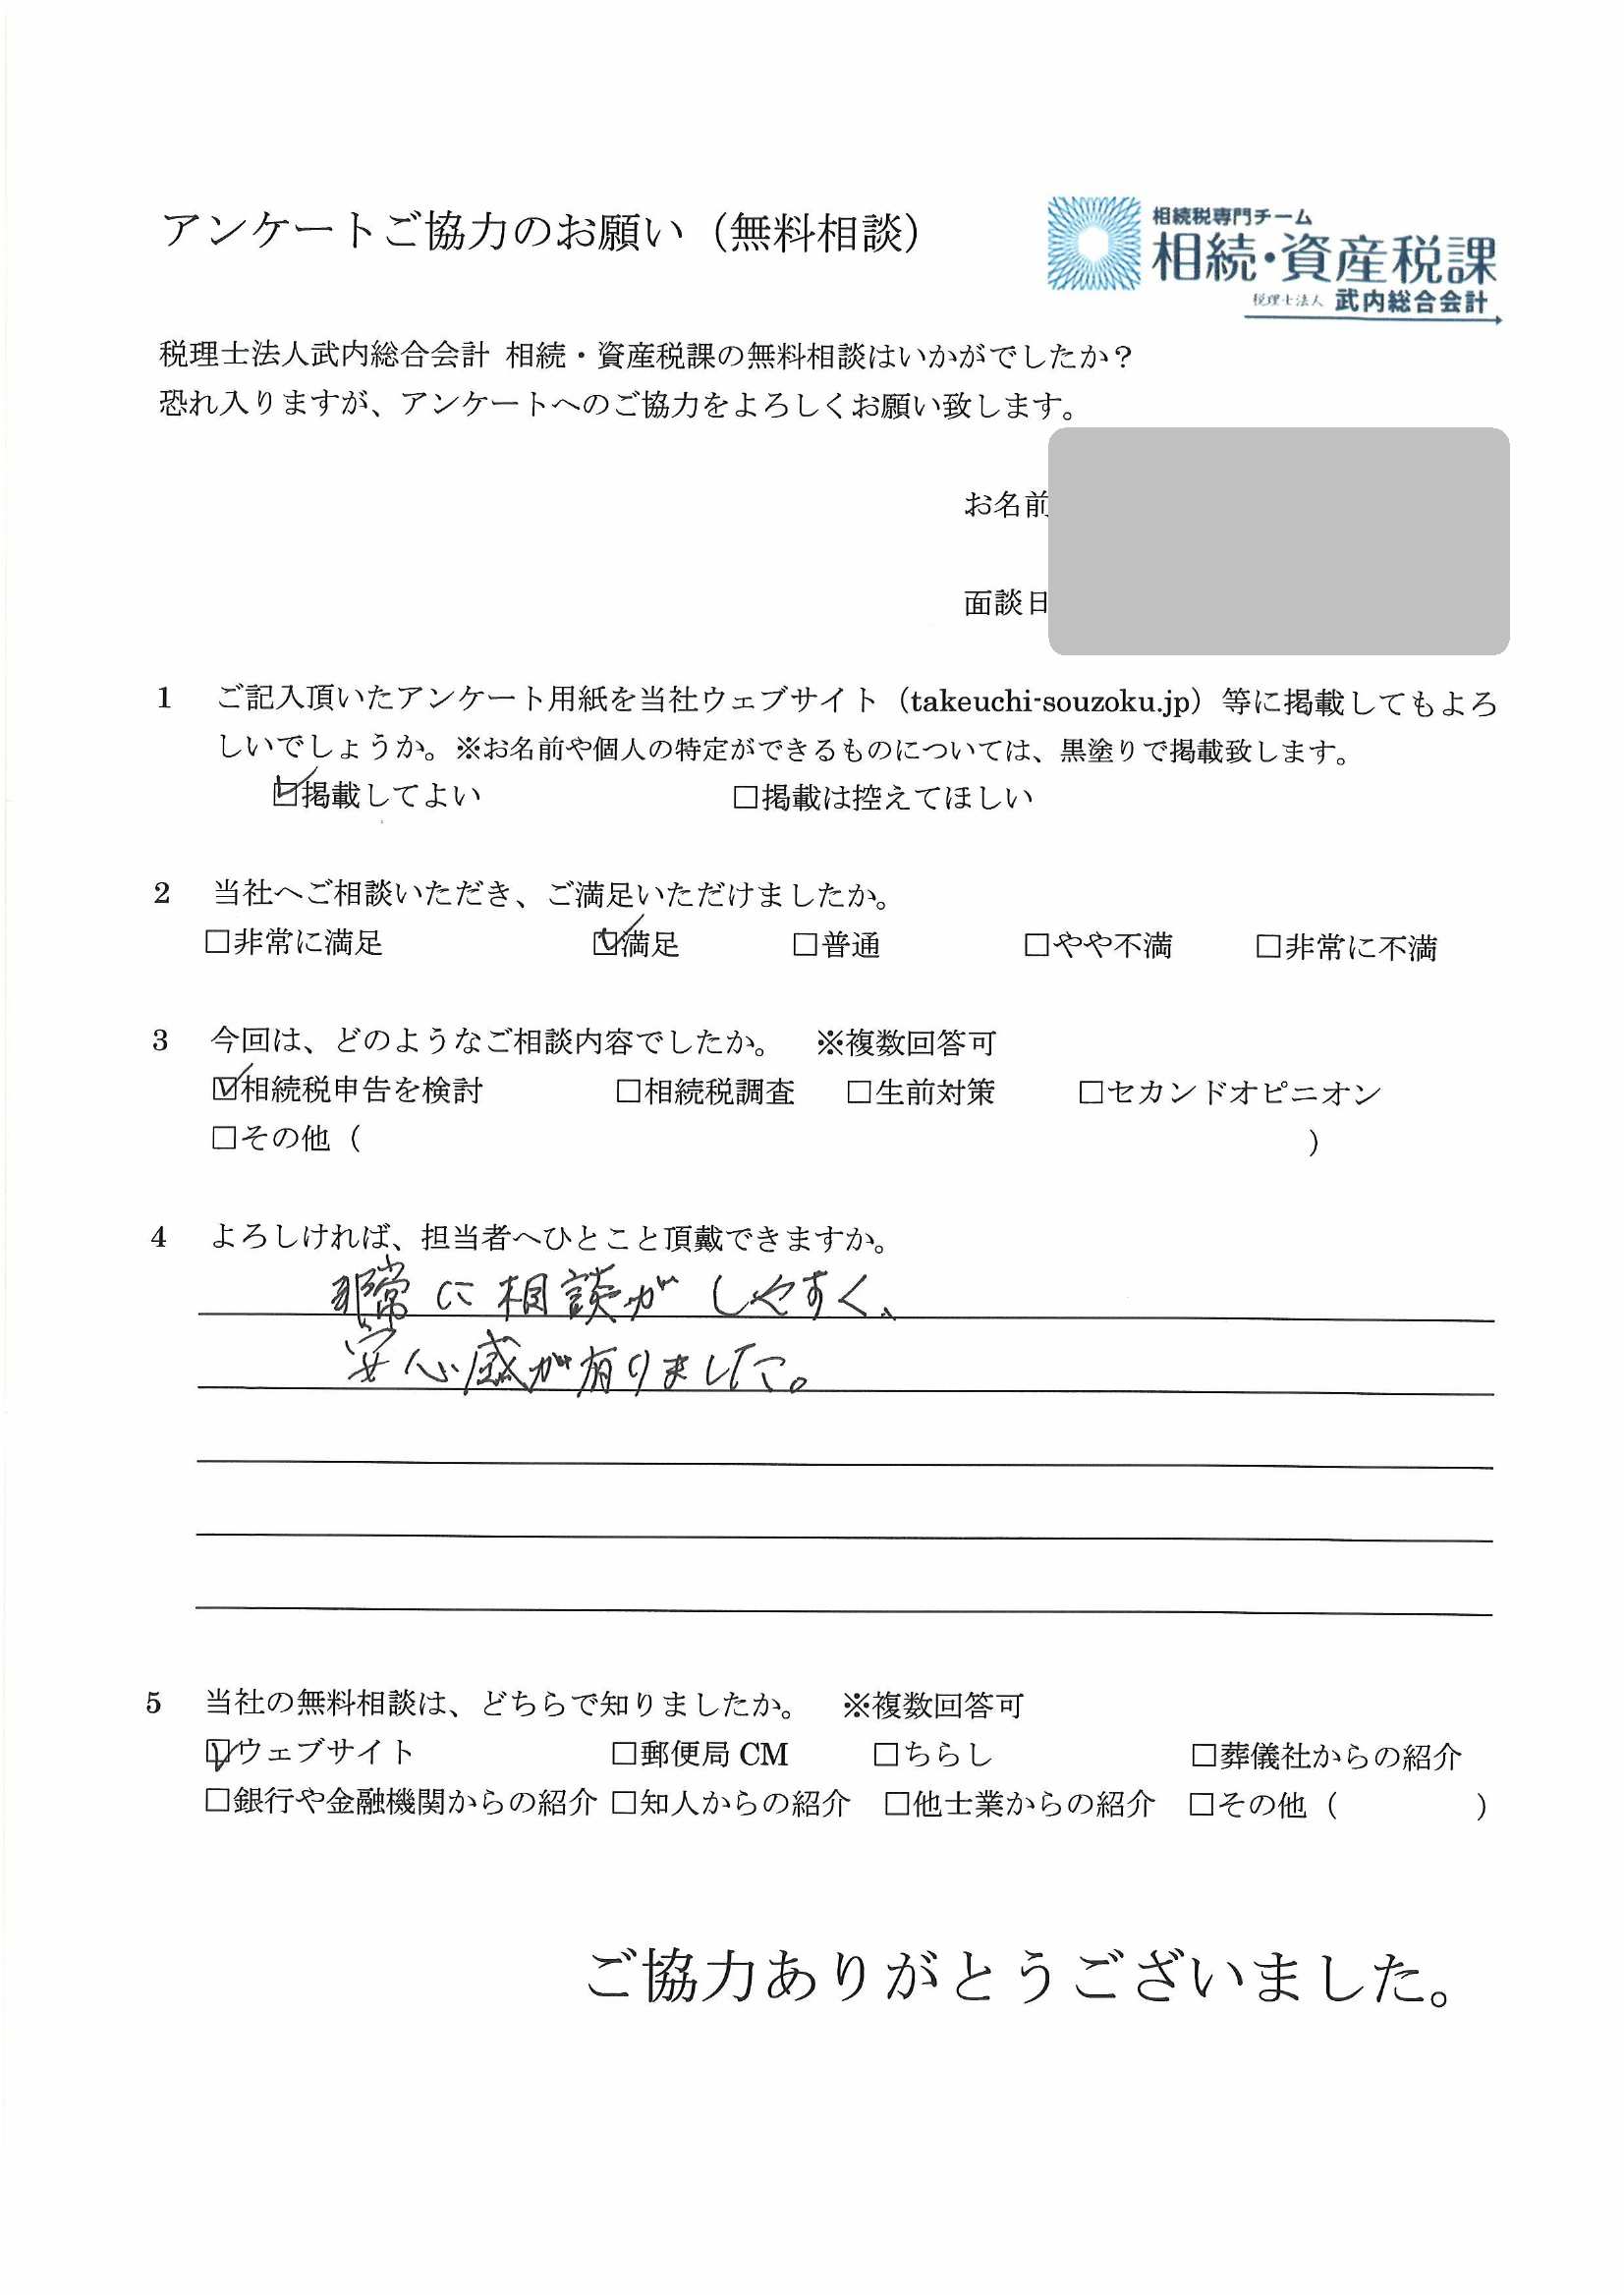 アンケートご協力のお願い（無料相談）
相続税専門チーム
相続・資産税課
税理士法人 武内総合会計
税理士法人武内総合会計 相続・資産税課の無料相談はいかがでしたか？
恐れ入りますが、アンケートへのご協力をよろしくお願い致します。
お名前
面談日
1 ご記入頂いたアンケート用紙を当社ウェブサイト（takeuchi-souzoku.jp）等に掲載してもよろ
しいでしょうか。※お名前や個人の特定ができるものについては、黒塗りで掲載致します。
☑掲載してよい □掲載は控えてほしい
2 当社へご相談いただき、ご満足いただけましたか。
□非常に満足 ☑満足 □普通 □やや不満 □非常に不満
3 今回は、どのようなご相談内容でしたか。 ※複数回答可
☑相続税申告を検討 □相続税調査 □生前対策 □セカンドオピニオン
□その他（ ）
4 よろしければ、担当者へひとこと頂戴できますか。
非常に相談がしやすく、
安心感が有りました。
5 当社の無料相談は、どちらで知りましたか。 ※複数回答可
☑ウェブサイト □郵便局 CM □ちらし □葬儀社からの紹介
□銀行や金融機関からの紹介 □知人からの紹介 □他士業からの紹介 □その他（ ）
ご協力ありがとうございました。